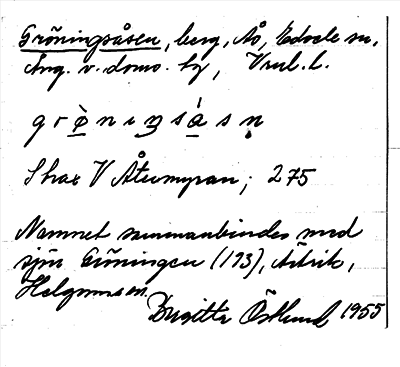 Gröningsåsen, berg, Åö, Edsele sn,
Ång. v. domo. by, Vrul. L.
g r ö n ı ŋ s å s n
Strax V Återmyran; 275
Namnet sammanbindes med
sjön Gröningen (193), Åsbrik,
Helgums sn.
Birgitta Östlund 1955